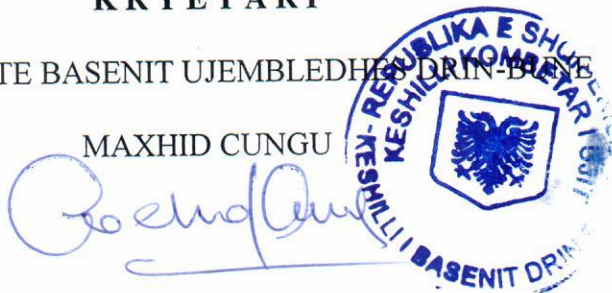 KRYETARI
TE BASENIT UJEMBLEDHES DRIN-BUNE
MAXHID CUNGU
REPUBLIKA E SHQ
KESHILLI KOMBETAR I UJIT
-KESHILLI I BASENIT DRIN